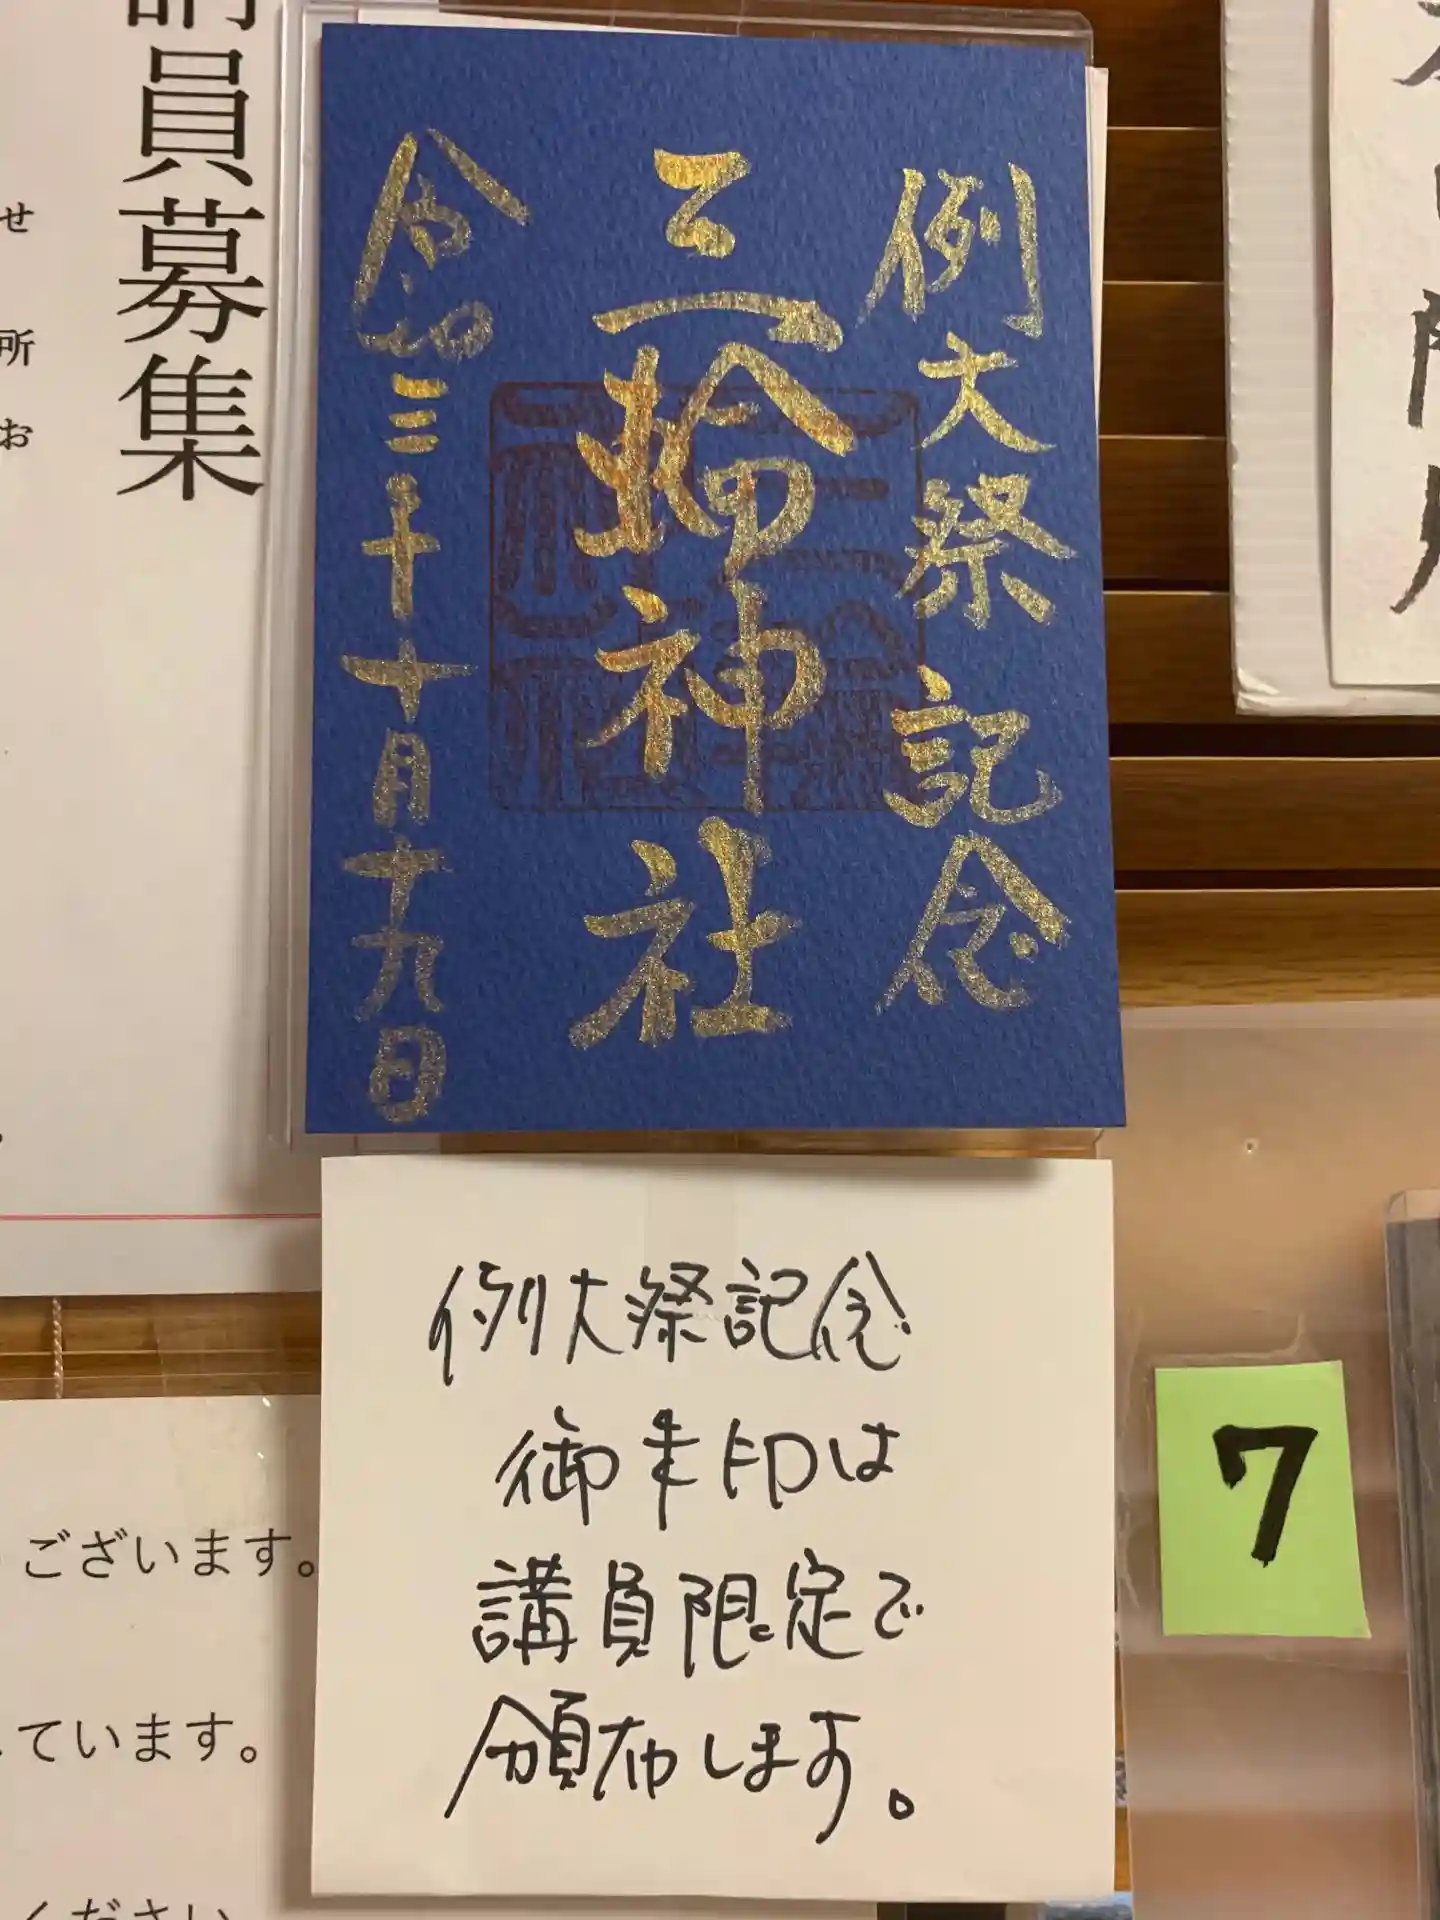 例大祭記念
三輪神社
令和三年十月十九日
員募集
せ
所
お
例大祭記念
御朱印は
講員限定で
頒布します。
7
ございます。
ています。
ください